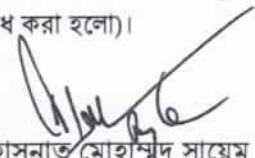 ধ করা হলো)।
হাসনাত মোহাম্মদ সায়েম